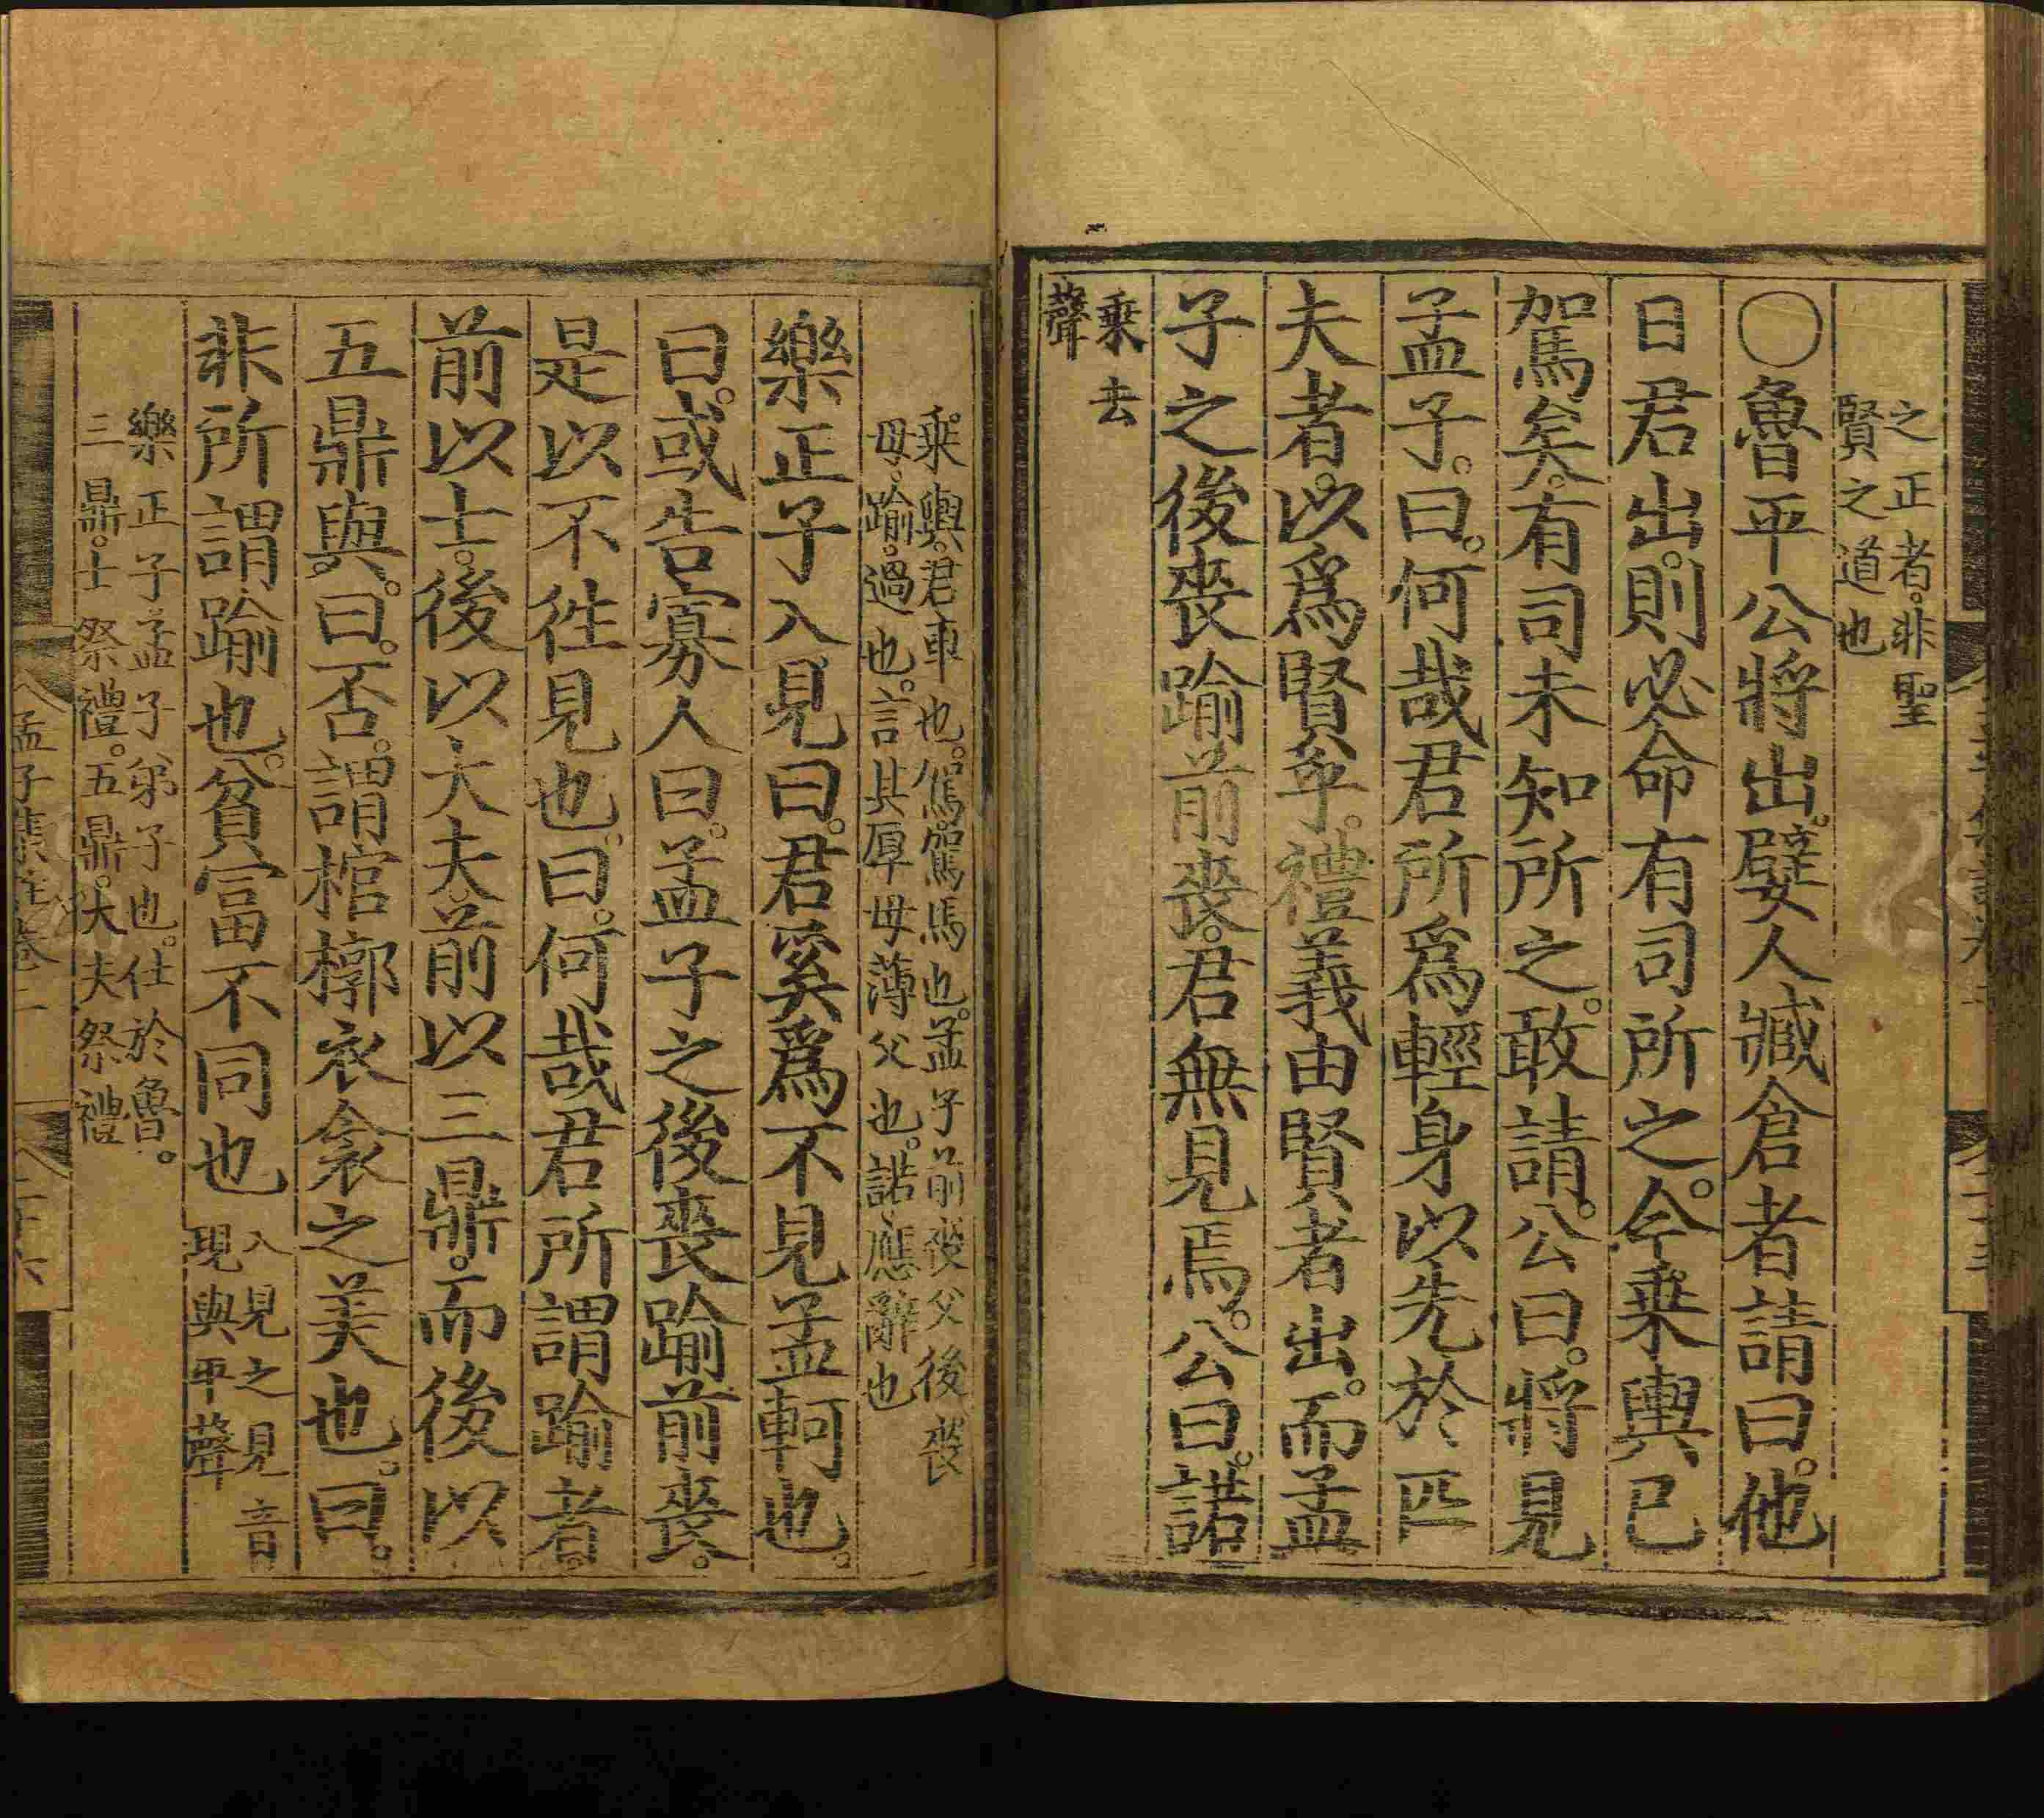 之正者。非聖
賢之道也
○魯平公將出。嬖人臧倉者請曰。他
日君出。則必命有司所之。今乗輿已
駕矣。有司未知所之。敢請。公曰。將見
孟子。曰。何哉君所爲輕身以先於匹
夫者。以爲賢乎。禮義由賢者出。而孟
子之後喪踰前喪。君無見焉。公曰。諾。
乗去
聲
乗輿。君車也。駕。駕馬也。孟子前喪父。後喪
母。踰。過也。言其厚母薄父也。諾。應辭也
樂正子入見曰。君奚爲不見孟軻也。
曰。或告寡人曰。孟子之後喪踰前喪。
是以不徃見也。曰。何哉君所謂踰者。
前以士。後以大夫。前以三鼎。而後以
五鼎與。曰。否。謂棺槨衣衾之美也。曰。
非所謂踰也。貧富不同也
入見之見音
現與平聲
樂正子孟子弟子也。仕於魯。
三鼎。士祭禮。五鼎。大夫祭禮
孟子集註卷二